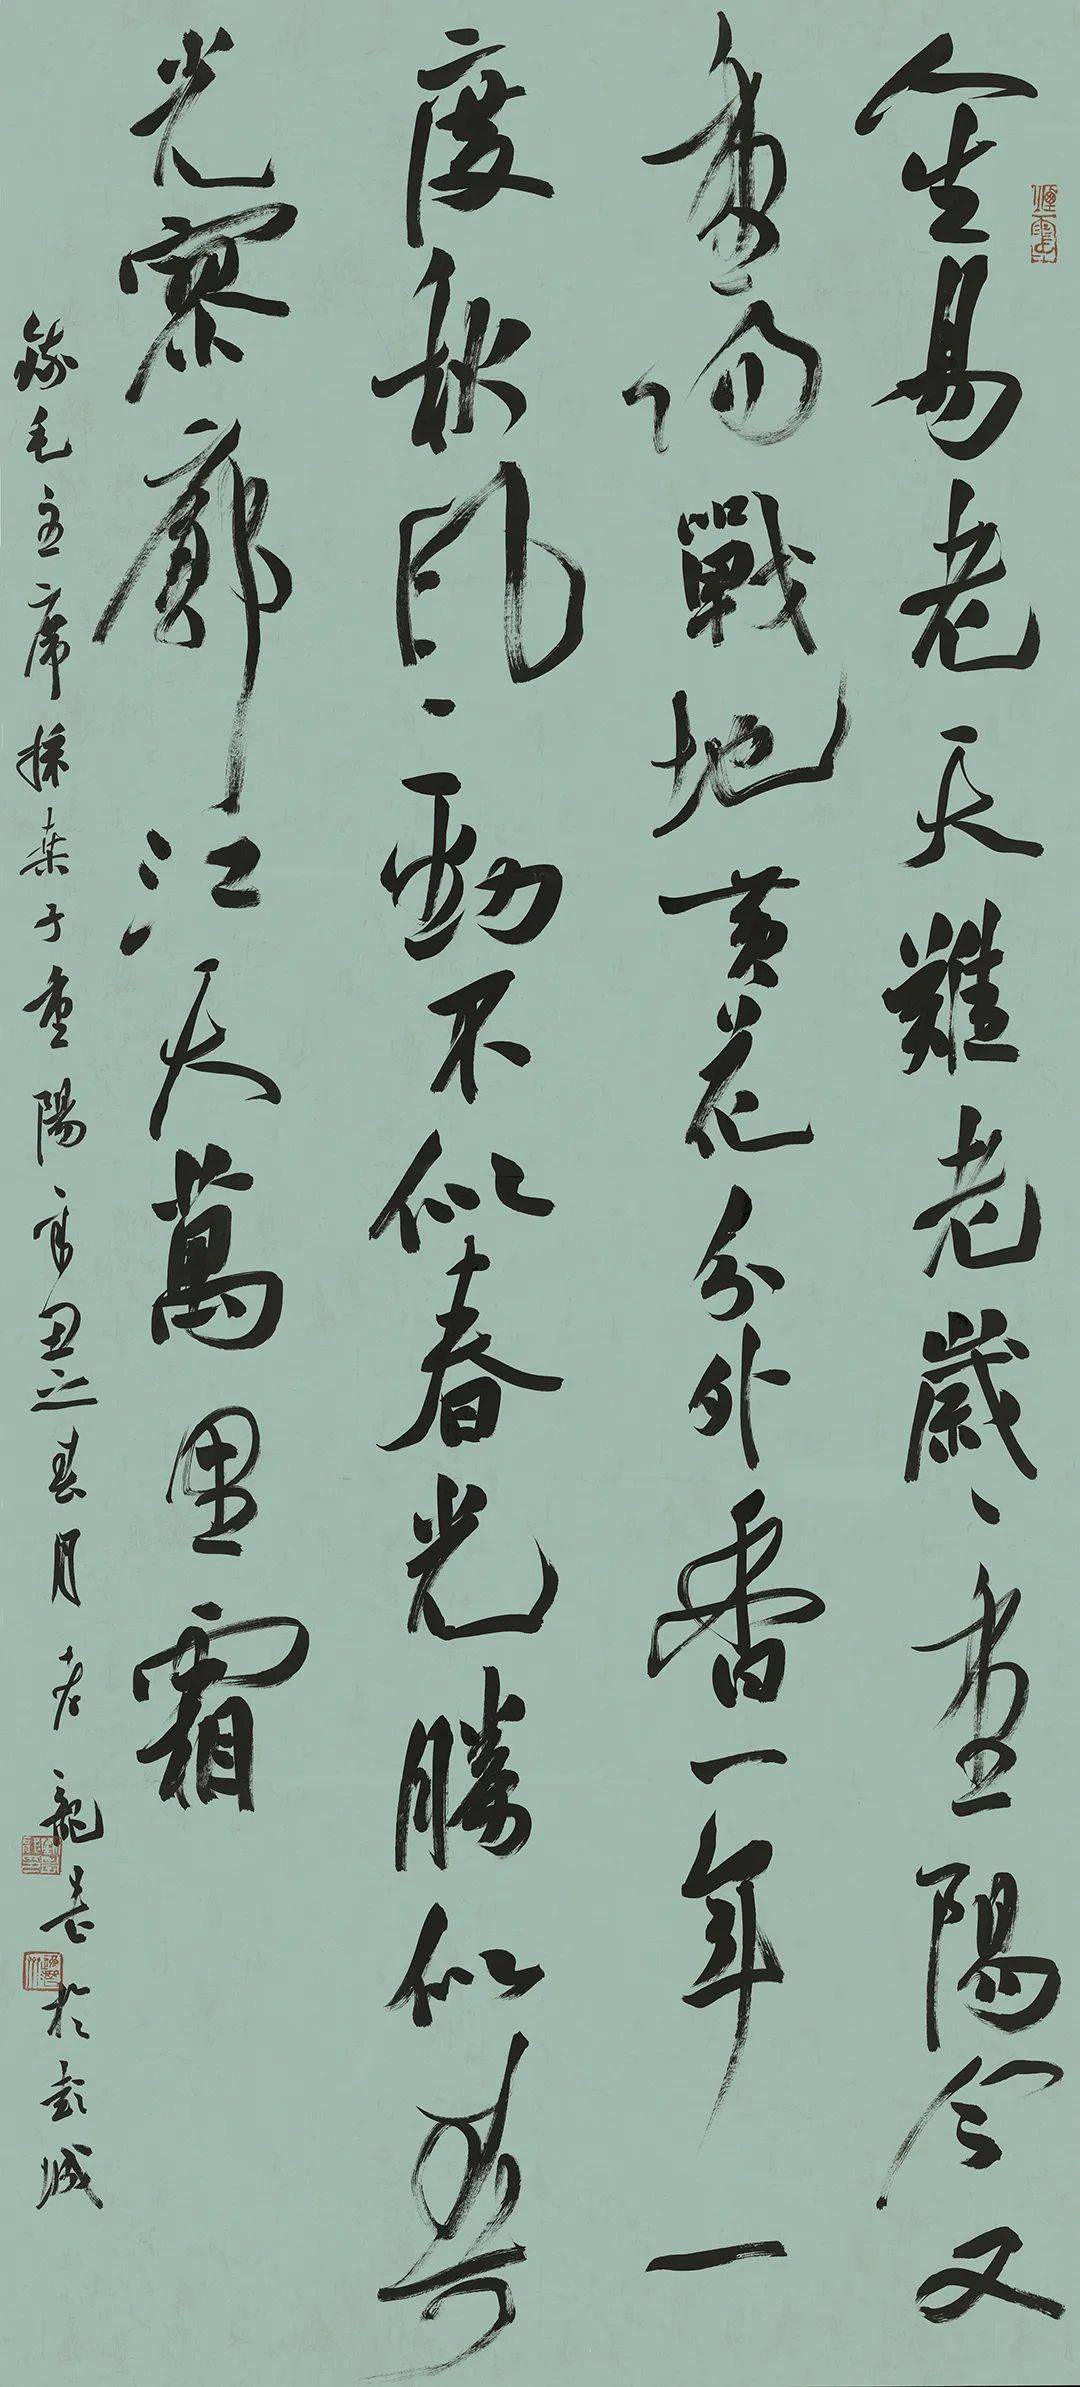 人生易老天難老歲、重陽今又
重陽戰地黃花分外香一年一
度秋風、勁不似春光勝似春
光寥廓江天萬里霜
錄毛主席採桑子重陽辛丑之春月龍書於彭城